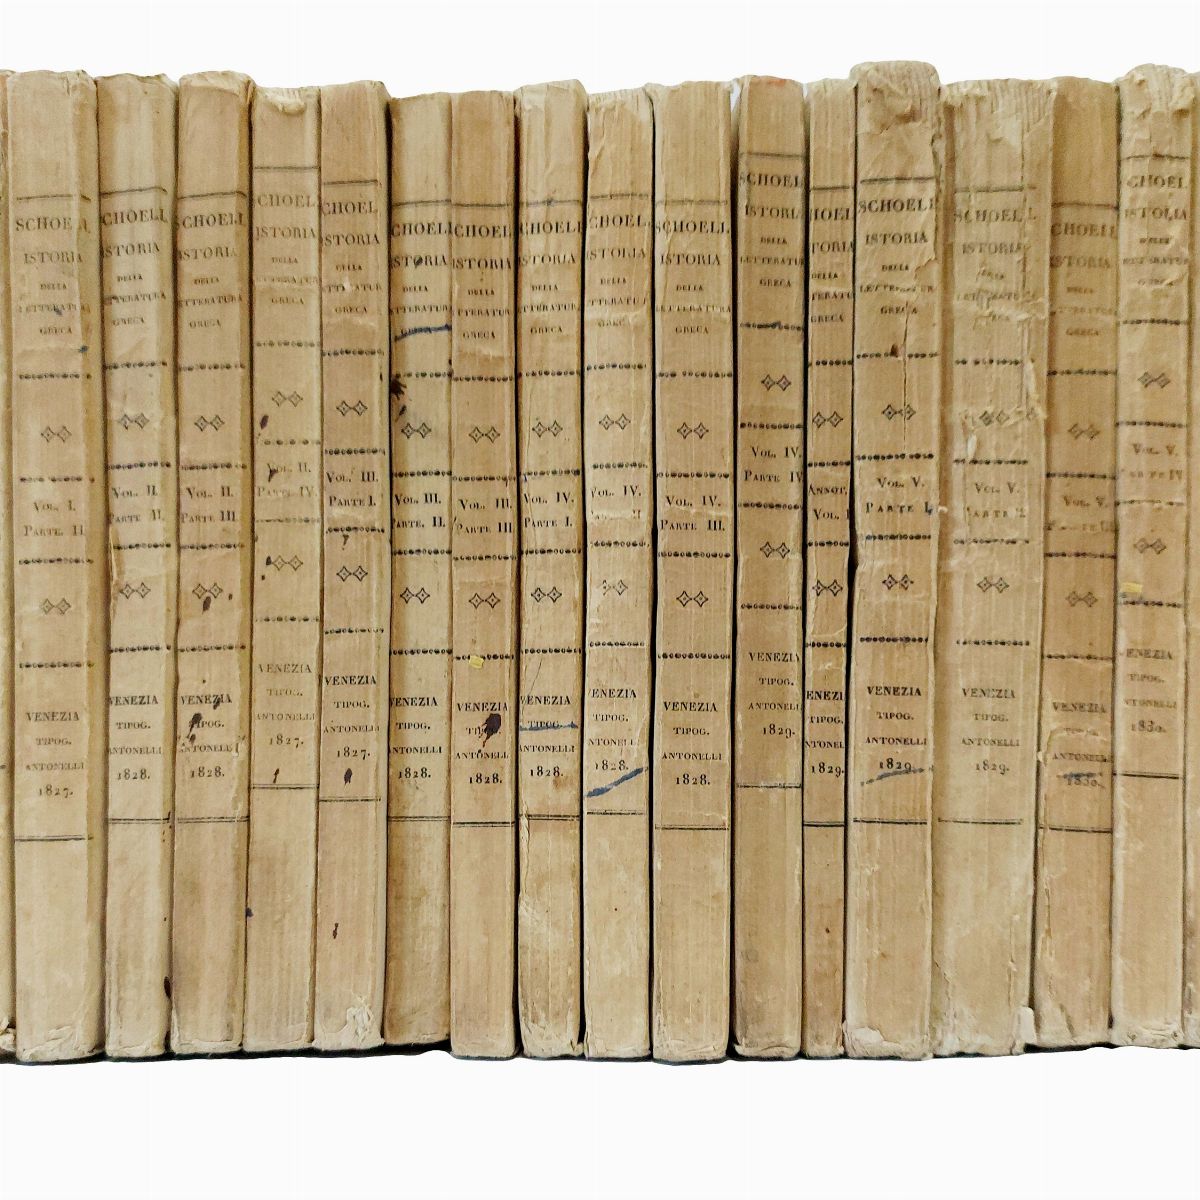 SCHOELL
ISTORIA
DELLA
LETTERATURA
GRECA
VOL. I.
PARTE. II
VENEZIA
TIPOG.
ANTONELLI
1827.
SCHOELL
ISTORIA
DELLA
LETTERATURA
GRECA
VOL. II.
PARTE II.
VENEZIA
TIPOG.
ANTONELLI
1828.
SCHOELL
ISTORIA
DELLA
LETTERATURA
GRECA
VOL. II.
PARTE III.
VENEZIA
TIPOG.
ANTONELLI
1828.
SCHOEL
ISTORIA
DELLA
LETTERATURA
GRECA
VOL. II.
PARTE IV.
VENEZIA
TIPOG.
ANTONELLI
1827.
CHOEL
ISTORIA
DELLA
LETTERATURA
GRECA
VOL. III
PARTE I.
VENEZIA
TIPOG.
ANTONELLI
1827.
SCHOELL
ISTORIA
DELLA
LETTERATURA
GRECA
VOL. III.
PARTE. II.
VENEZIA
TIPOG.
ANTONELLI
1828.
SCHOELL
ISTORIA
DELLA
LETTERATURA
GRECA
VOL. III.
PARTE III
VENEZIA
TIPOG.
ANTONELLI
1828.
SCHOELL
ISTORIA
DELLA
LETTERATURA
GRECA
VOL. IV.
PARTE I.
VENEZIA
TIPOG.
ANTONELLI
1828.
SCHOEL
ISTORIA
DELLA
LETTERATURA
GREC
VOL. IV.
VENEZIA
TIPOG.
ANTONELLI
1828.
SCHOELL
ISTORIA
DELLA
LETTERATURA
GRECA
VOL. IV.
PARTE III.
VENEZIA
TIPOG.
ANTONELLI
1828.
SCHOEL
ISTORIA
DELLA
LETTERATUR
GRECA
VOL. IV.
PARTE IV
VENEZIA
TIPOG.
ANTONELLI
1829.
HOEL
TORIA
DELLA
GRECA
ANNOT.
VOL. I
VENEZI
TIPOG.
ANTONEL
1829.
SCHOELL
ISTORIA
DELLA
LETTERATUR
GRECA
VOL. V.
PARTE I.
VENEZIA
TIPOG.
ANTONELLI
1829.
SCHOELL
ISTORIA
DELLA
LETTERATURA
GRECA
VOL. V.
PARTE
VENEZIA
TIPOG.
ANTONELLI
1829.
SCHOELL
ISTORIA
DELLA
LETTERATURA
GRECA
VOL. V.
VENEZIA
TIPOG.
ANTONELLI
1830.
CHOEL
ISTORIA
DELLE
LETTERATUR
VOL. V.
PARTE IV
VENEZIA
TIPOG.
ANTONELLI
1830.